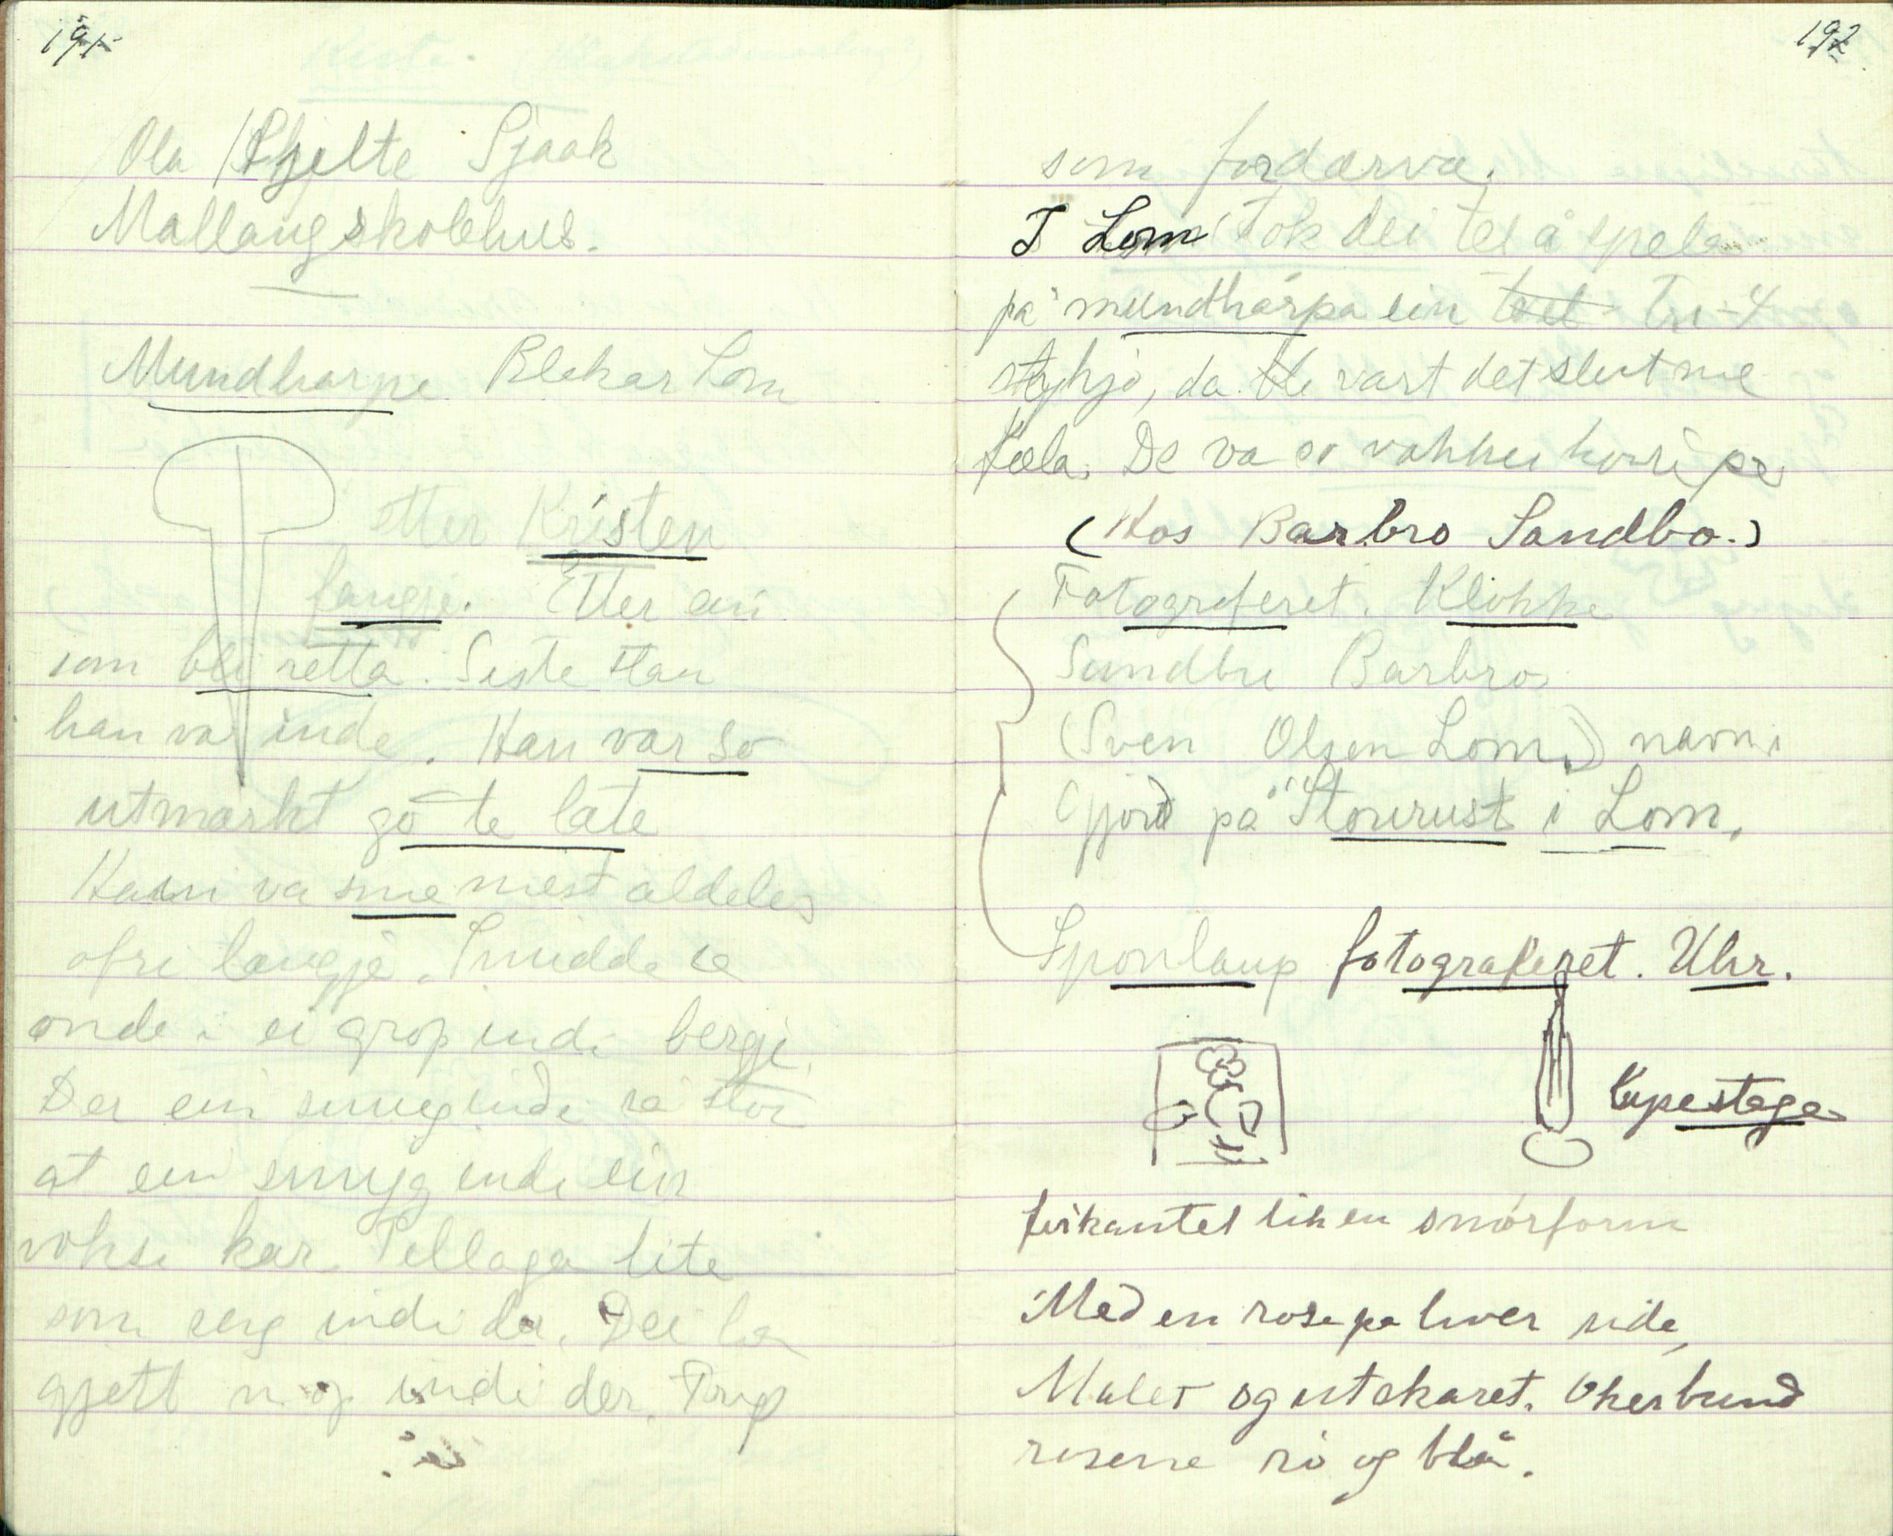 191
Ola Skjelte Sjaak
Mallangskolehus.
Mundharpe Blekar Lom
etter Kristen
fangje. Etter ein
som bli retta. Siste stan
han va inde. Han var so
utmarkt go te late
Hain va sme mest aldeles
ofri langje. Smidde
onde i ei grop indi bergje.
Der ein smug indi så stor
at ein smyg indi ein
vokse kar. Tellaga lite
som seng indi der. Dei ha
gjett n og indi der. Trup
192
som fordærva.
I Lom tok dei tel å spela
på mundharpa ein tri-4
stykje, da vart det slut me
Fæla. De va so vakker horri pa
(Hos Barbro Sandbo.)
Fotograferet. Klokke
Sandbu Barbro
(Sven Olsen Lom.) navn i
Gjord på Storrust i Lom.
Sponlaup fotograferet. Uhr.
kupestege
firkantet lik en smörform
Med en rose pa hver side,
Malet og utskaret. Okerbund
rosene rö og blå.